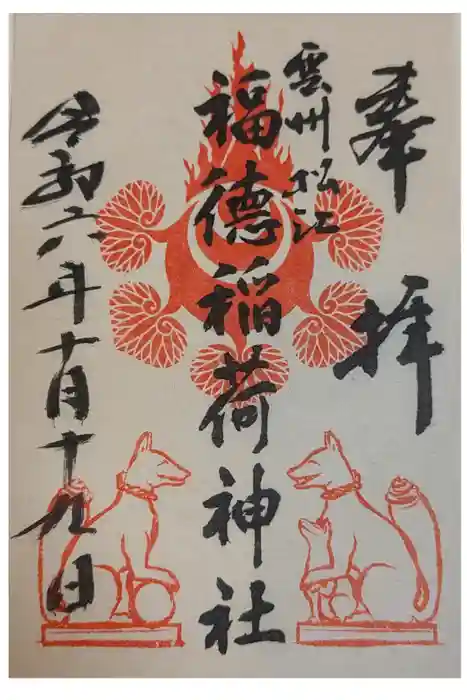 奉拝
雲州松江
福徳稲荷神社
令和六年十月十九日